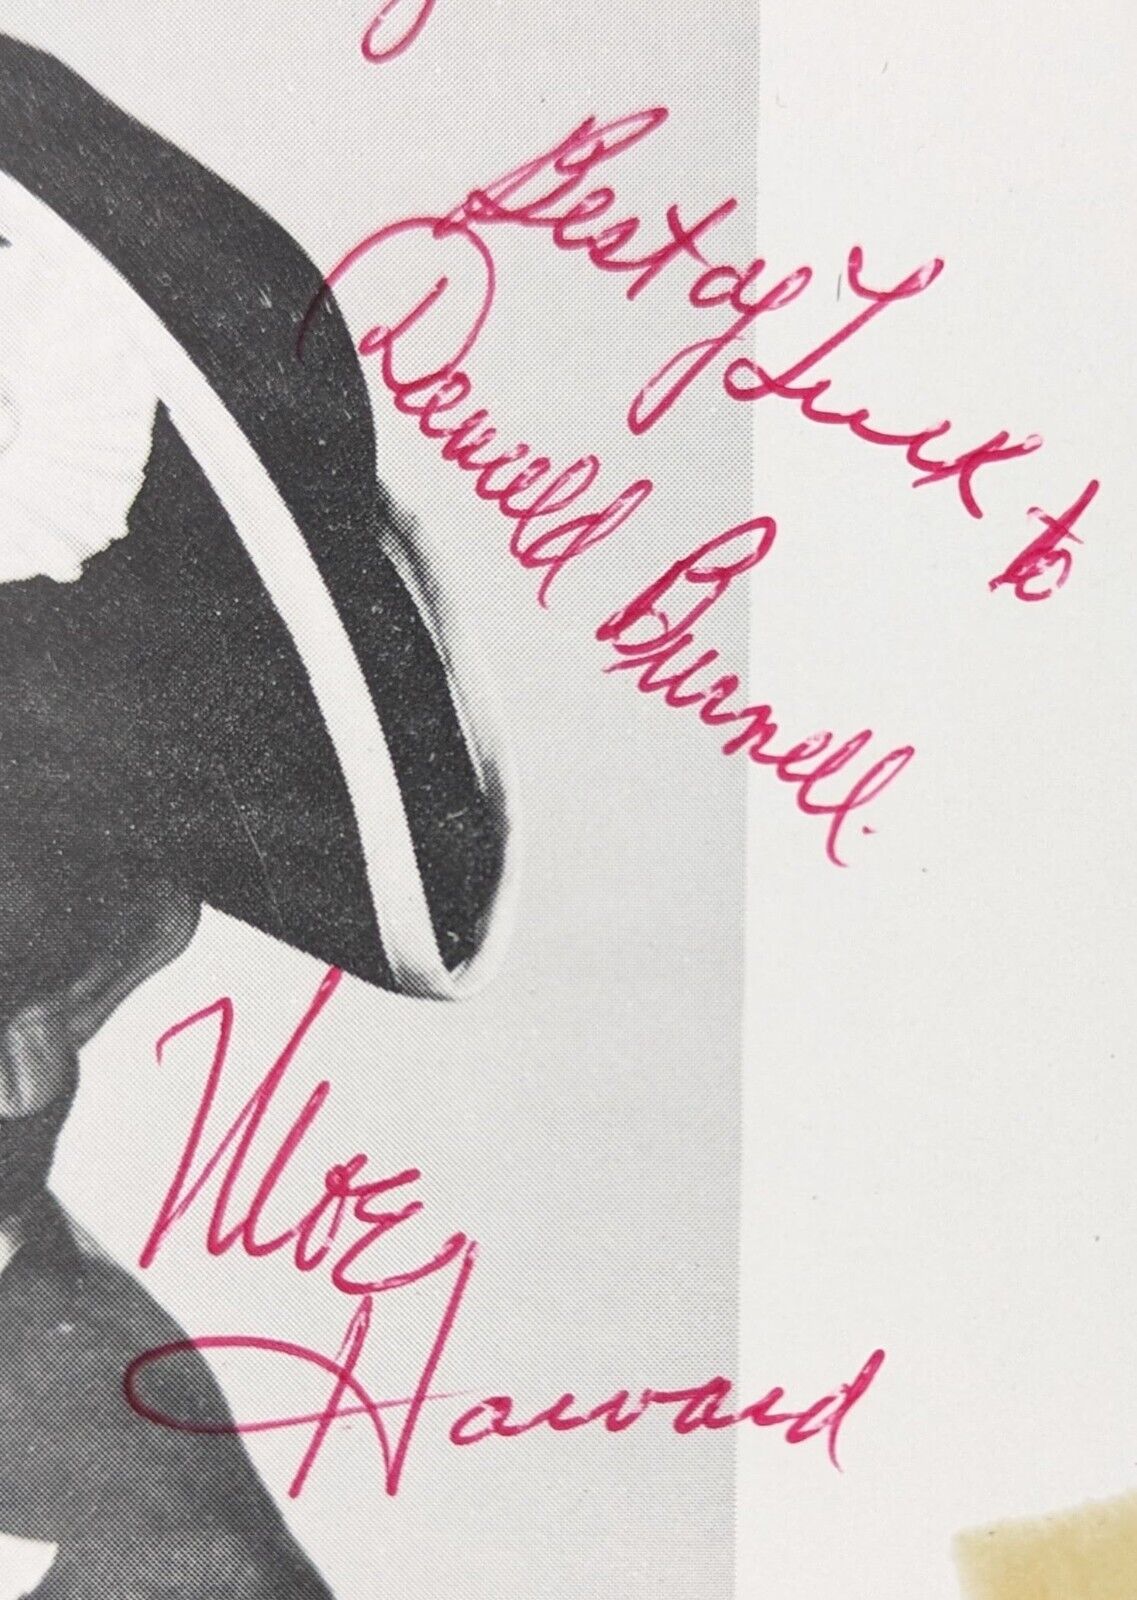 Best of Luck to
Donald Burnell.
Moe
Howard